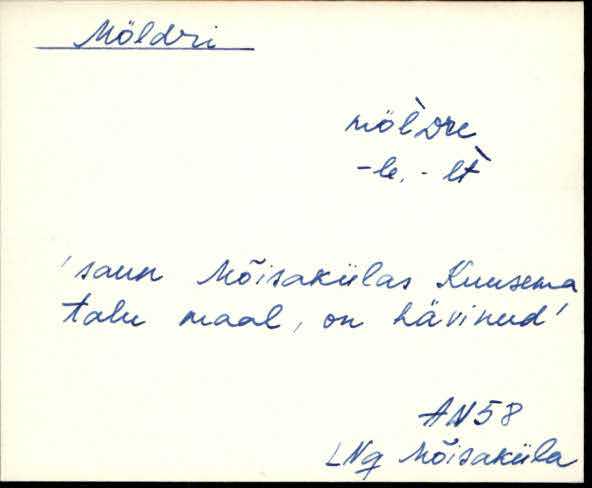 Möldri
möl̀Dre
-le, - lt̀
'saun Mõisakülas Kuusema
talu maal, on hävinud'
AN58
LNg Mõisaküla